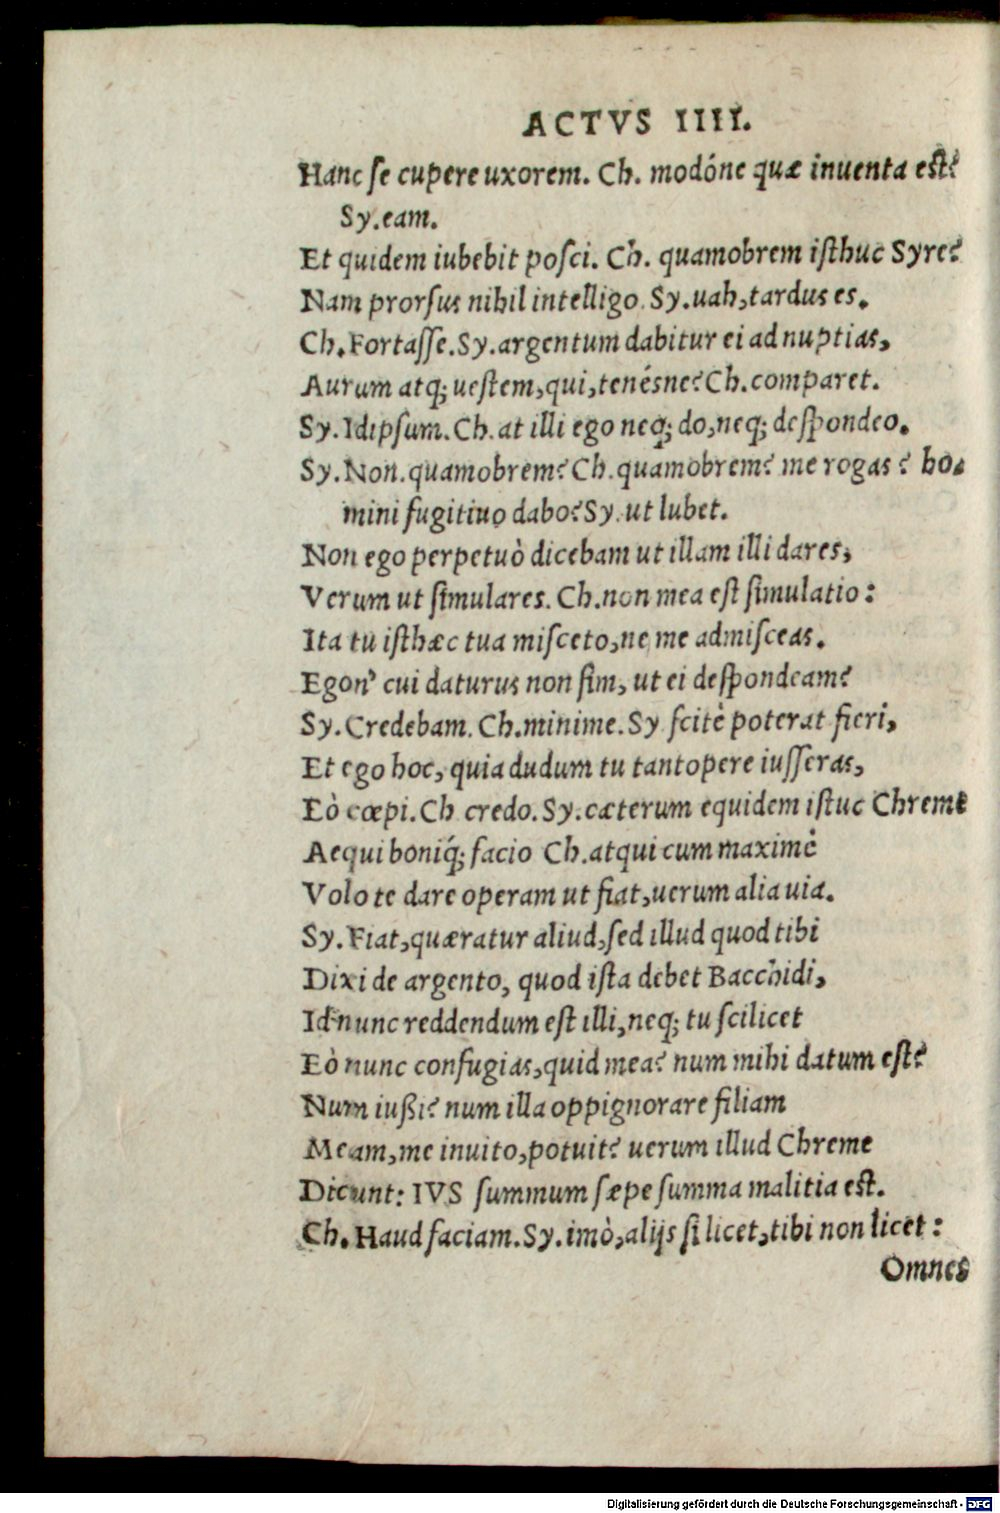 ACTVS IIII.
Hanc se cupere uxorem. Ch. modóne quæ inuenta est?
Sy.eam.
Et quidem iubebit posci. Ch. quamobrem isthuc Syre?
Nam prorsus nihil intelligo. Sy.uah,tardus es.
Ch.Fortasse.Sy.argentum dabitur ei ad nuptias,
Aurum atq; uestem,qui,tenésne?Ch.comparet.
Sy.Idipsum.Ch.at illi ego neq; do,neq; despondeo.
Sy.Non.quamobrem?Ch.quamobrem? me rogas? ho-
mini fugitiuo dabo?Sy.ut lubet.
Non ego perpetuò dicebam ut illam illi dares,
Verum ut simulares. Ch.non mea est simulatio:
Ita tu isthæc tua misceto,ne me admisceas.
Egon' cui daturus non sim, ut ei despondeam?
Sy.Credebam. Ch.minime.Sy scitè poterat fieri,
Et ego hoc, quia dudum tu tantopere iusseras,
Eò cœpi.Ch credo.Sy.cæterum equidem istuc Chreme
Aequi boniq́; facio Ch.atqui cum maximè
Volo te dare operam ut fiat,uerum alia uia.
Sy.Fiat,quæratur aliud,sed illud quod tibi
Dixi de argento, quod ista debet Bacchidi,
Id nunc reddendum est illi,neq; tu scilicet
Eò nunc confugias,quid mea? num mihi datum est?
Num iußi? num illa oppignorare filiam
Meam,me inuito,potuit? uerum illud Chreme
Dicunt: IVS summum sæpe summa malitia est.
Ch.Haud faciam.Sy.imò,alijs si licet,tibi non licet:
Omnes
Digitalisierung gefördert durch die Deutsche Forschungsgemeinschaft - DFG